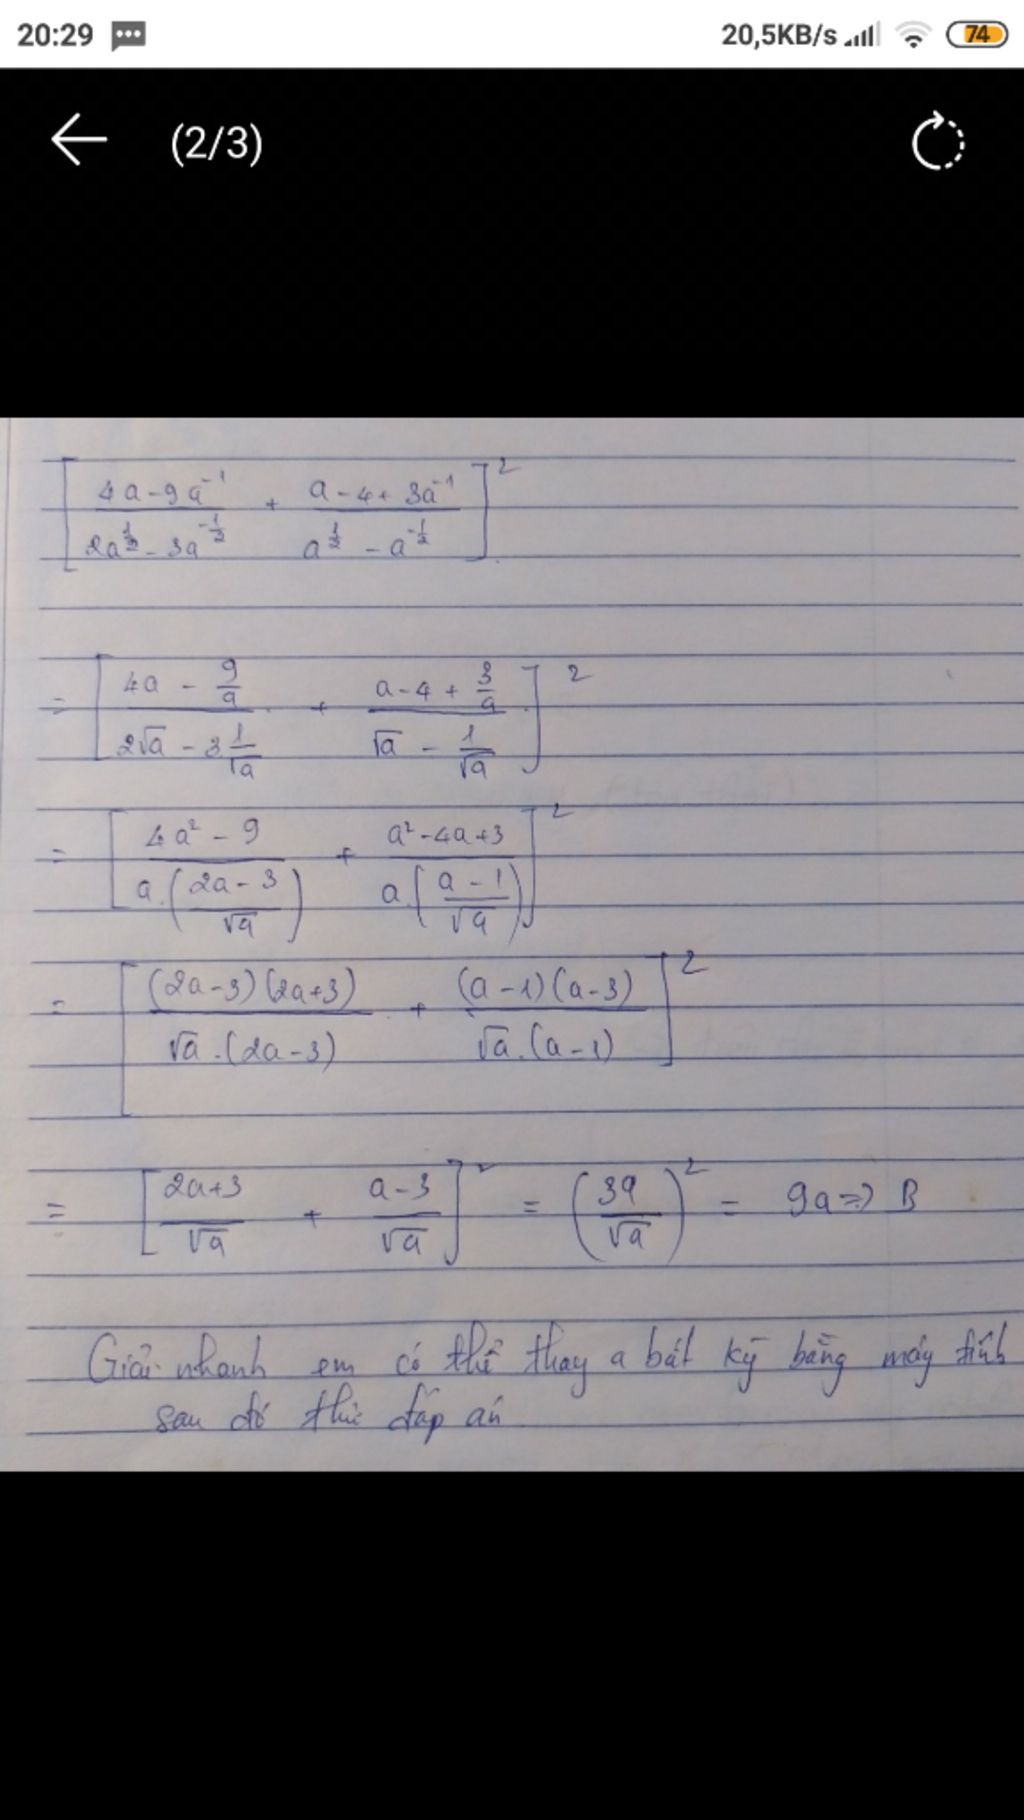 20:29 20,5KB/s 74
(2/3)
[ (4a - 9a⁻¹)/(2a^(1/2) - 3a^(-1/2)) + (a - 4 + 3a⁻¹)/(a^(1/2) - a^(-1/2)) ]²
= [ (4a - 9/a)/(2√a - 3 1/√a) + (a - 4 + 3/a)/(√a - 1/√a) ]²
= [ (4a² - 9)/(a.((2a - 3)/√a)) + (a² - 4a + 3)/(a.((a - 1)/√a)) ]²
= [ (2a-3)(2a+3)/(√a.(2a-3)) + (a-1)(a-3)/(√a.(a-1)) ]²
= [ (2a+3)/√a + (a-3)/√a ]² = (3a/√a)² = 9a => B
Giải nhanh em có thể thay a bất kỳ bằng máy tính
sau đó thử đáp án